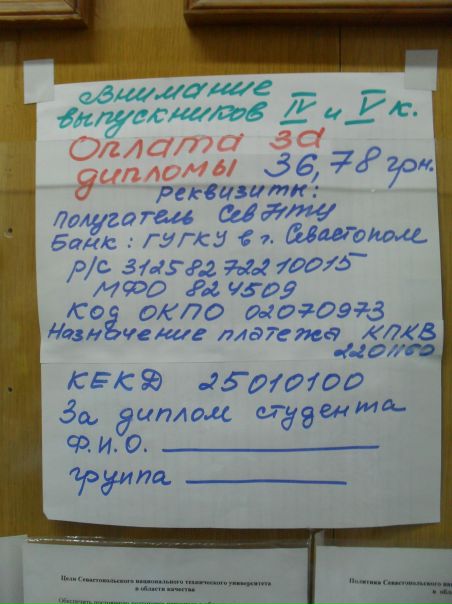 Внимание
выпускников IV и V к.
Оплата за
дипломы 36,78 грн.
реквизиты:
Получатель СевНТУ
Банк: ГУГКУ в г. Севастополе
Р/С 31258272210015
МФО 824509
Код ОКПО 02070973
Назначение платежа КПКВ
2201160
КЕКД 25010100
За диплом студента
Ф.И.О.
группа
Цели Севастопольского национального технического университета
в области качества
Политика Севастопольского национального